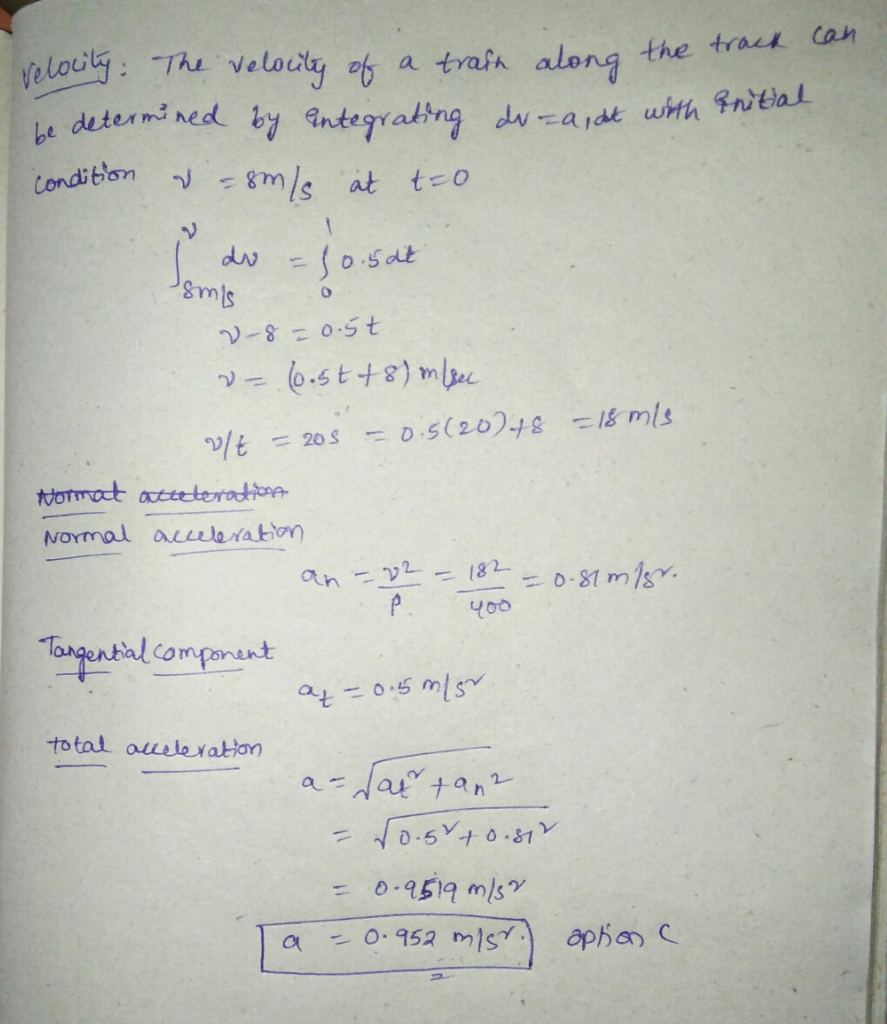 Velocity: The velocity of a train along the track can
be determined by integrating dv = a,dt with initial
condition v = 8m/s at t=0
∫ᵛ₈ₘ/ₛ dv = ∫¹₀ 0.5dt
v-8 = 0.5t
v = (0.5t+8) m/sec
v/t = 20s = 0.5(20)+8 = 18 m/s
Normal acceleration
Normal acceleration
an = v²/ρ = 18²/400 = 0.81 m/s².
Tangential component
at = 0.5 m/s²
total acceleration
a = √at² + an²
= √0.5² + 0.81²
= 0.9519 m/s²
a = 0.952 m/s². option C